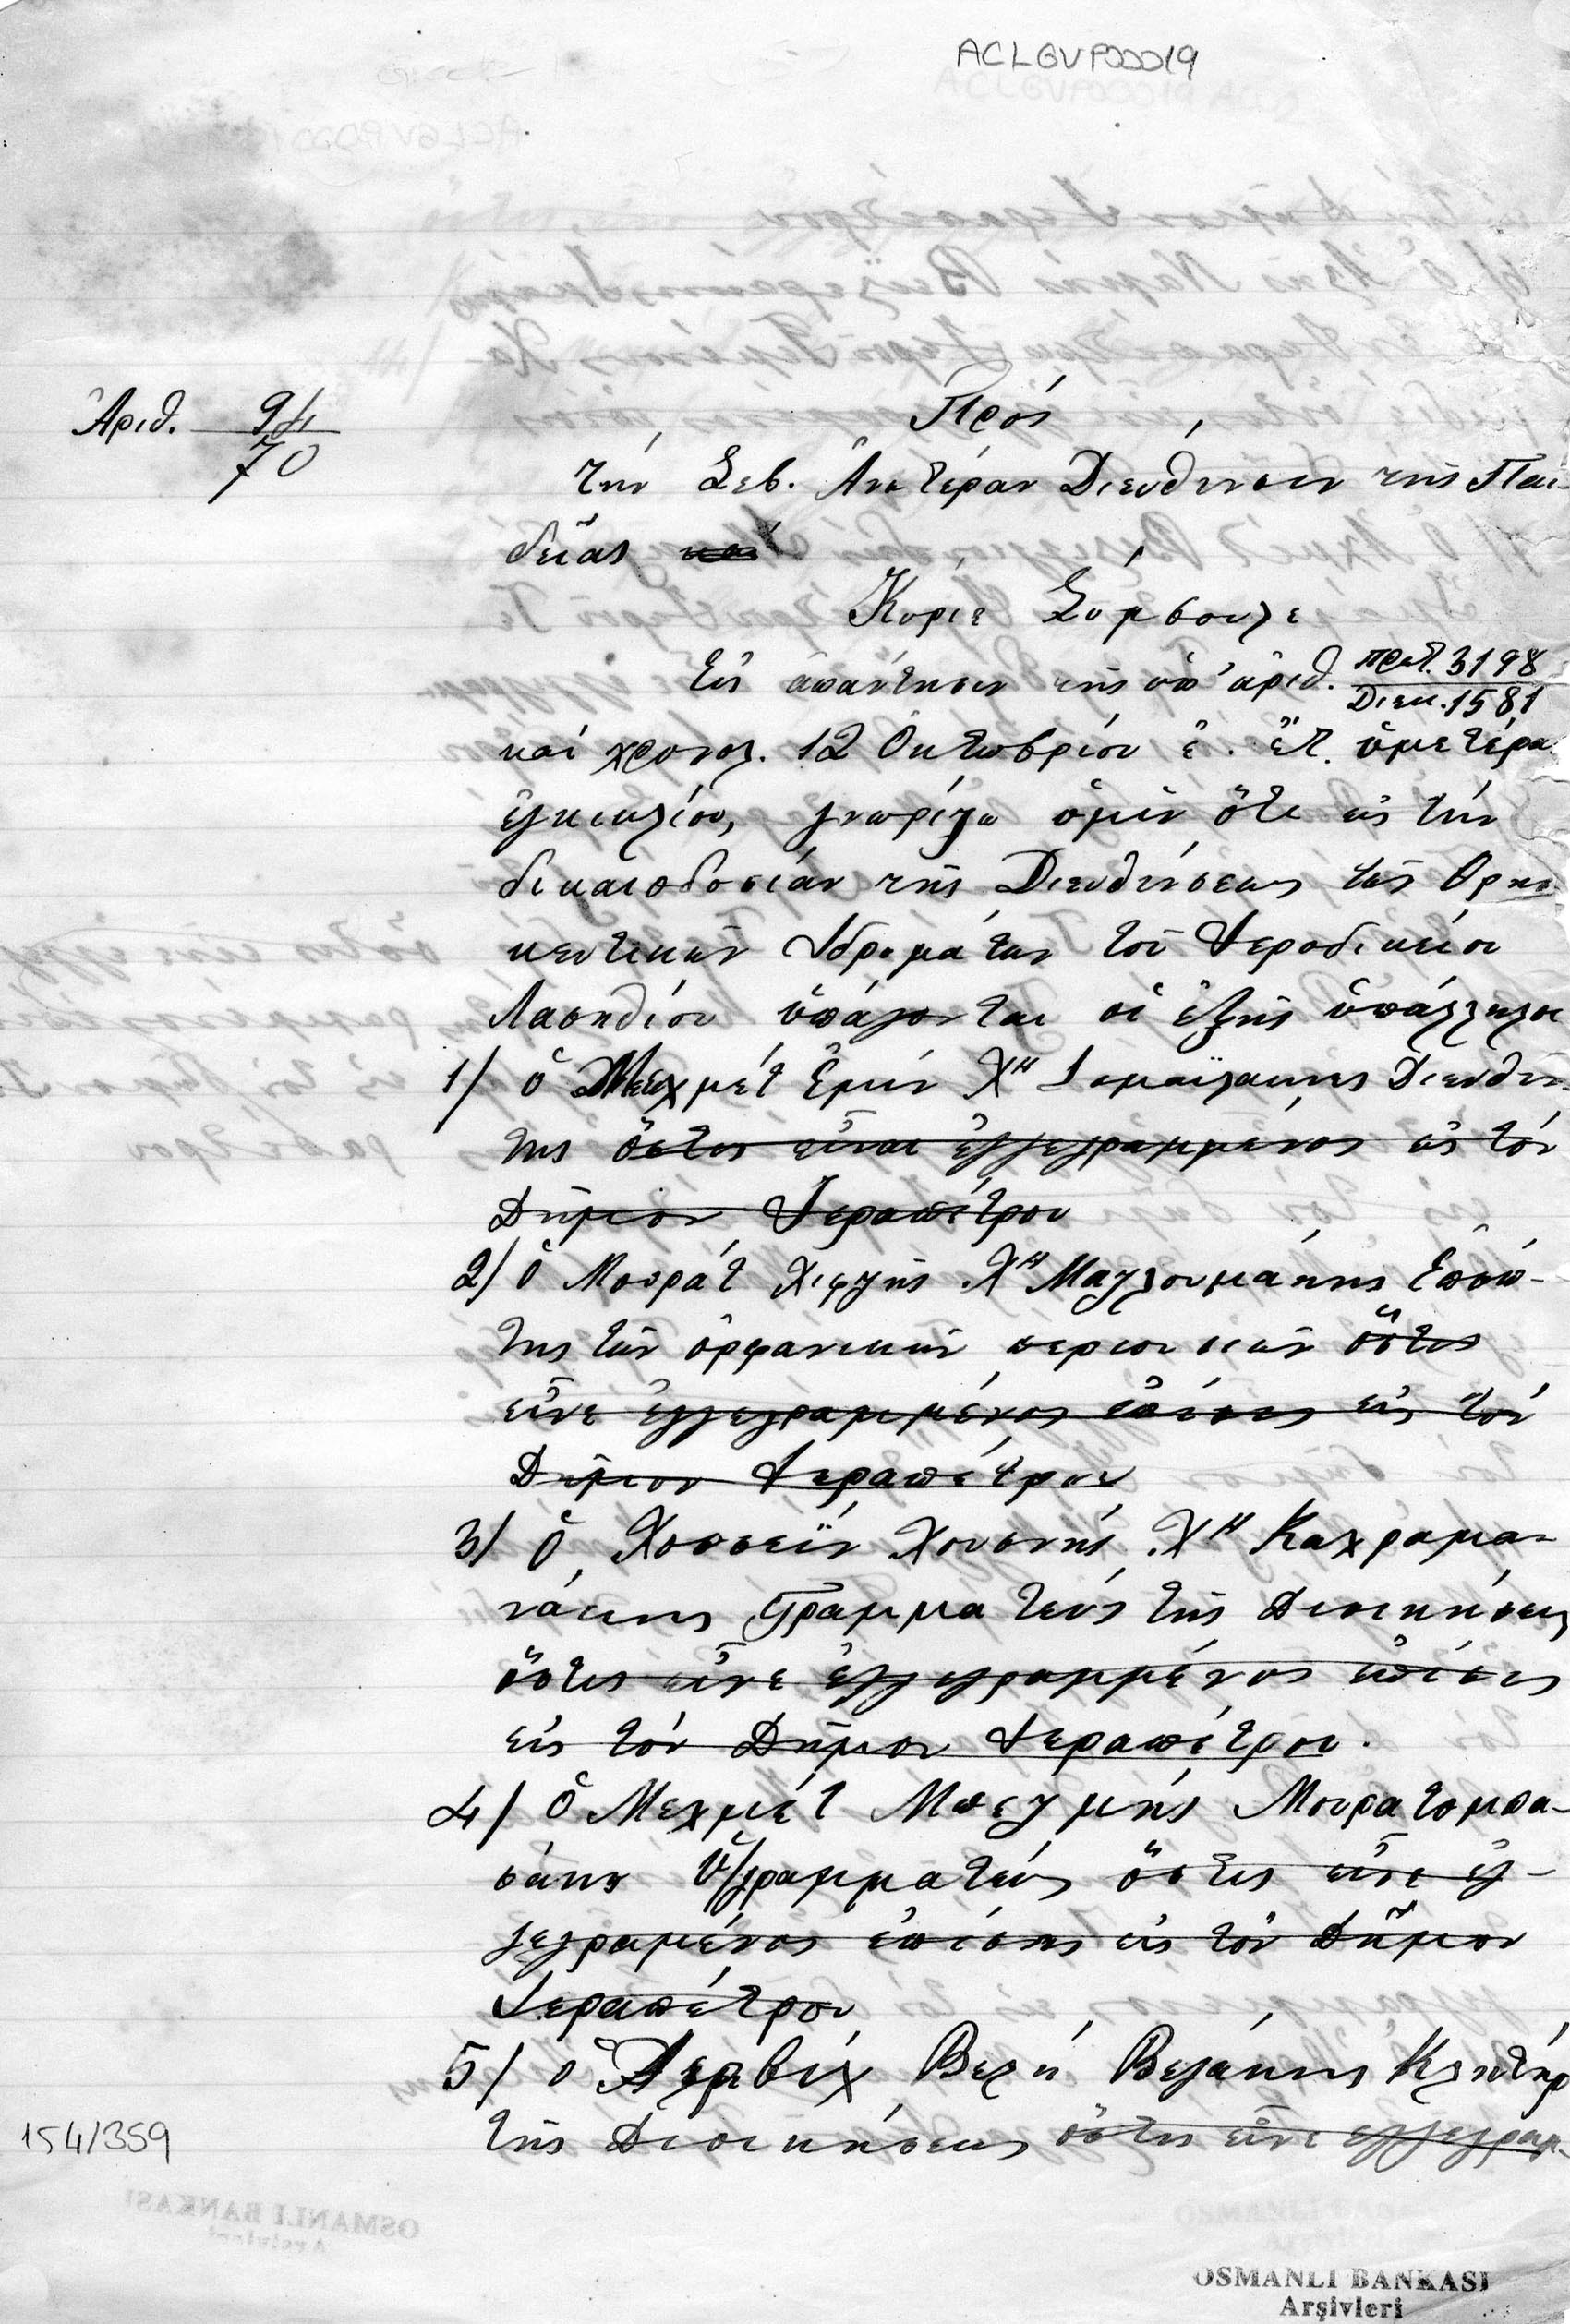 ACLGVP00019
Ἀριθ. 94/70
Πρός
τήν Σεβ. Ἀνωτέραν Διεύθυνσιν τῆς Παι-
δείας καί
Κύριε Σύμβουλε
Εἰς ἀπάντησιν τῆς ὑπ' ἀριθ. πρωτ. 3198 / Διεκ. 1581
καί χρονολ. 12 Ὀκτωβρίου ἐ. ἔτ. ὑμετέρα
ἐγκυκλίου, γνωρίζω ὑμῖν ὅτι εἰς τήν
δικαιοδοσίαν τῆς Διευθύνσεως τῶν Θρησ-
κευτικῶν Ἱδρυμάτων τοῦ Ἱεροδικείου
Λασηθίου ὑπάγονται οἱ ἑξῆς ὑπάλληλοι
1/ ὁ Μεχμέτ Ἐμίν Χʺ Ισμαϊλάκης Διευθυν-
τής ὅστις εἶναι ἐγγεγραμμένος εἰς τόν
Δῆμον Ἱεραπέτρου
2/ ὁ Μουράτ Χιφζής Χʺ Μαζλουμάκης Ἐπόπ-
της τῶν ὀρφανικῶν περιουσιῶν ὅστις
εἶνε ἐγγεγραμμένος ἐπίσης εἰς τόν
Δῆμον Ἱεραπέτρου
3/ ὁ Χουσεΐν Χουσνής Χʺ Καχραμα-
νάκης Γραμματεύς τῆς Διοικήσεως
ὅστις εἶνε ἐγγεγραμμένος ἐπίσης
εἰς τόν Δῆμον Ἱεραπέτρου.
4/ ὁ Μεχμέτ Μπεζμής Μουρατομπα-
σάκης Ὑ/γραμματεύς ὅστις εἶνε ἐγ-
γεγραμένος ἐπίσης εἰς τόν Δῆμον
Ἱεραπέτρου
5/ ὁ Δερβίχ Βελή Βελάκης Κλητήρ
τῆς Διοικήσεως ὅστις εἶνε ἐγγεγραμ-
154/359
OSMANLI BANKASI
Arşivleri